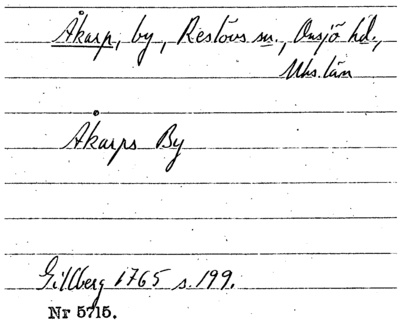 Åkarp, by, Reslövs sn., Onsjö hd.,
Mhs. län
Åkarps By
Gillberg 1765 s. 199.
Nr 5715.